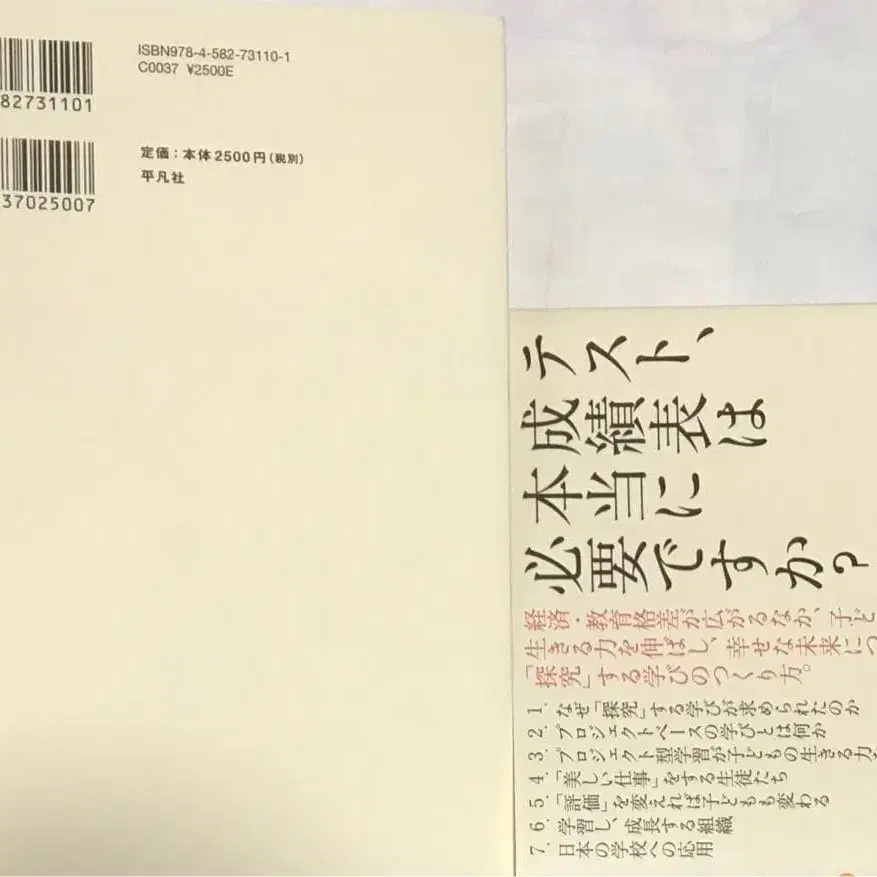 ISBN978-4-582-73110-1
C0037 ¥2500E
82731101
定価：本体2500円（税別）
平凡社
37025007
テスト、
成績表は
本当に
必要ですか？
経済・教育格差が広がるなか、子ど
生きる力を伸ばし、幸せな未来につ
「探究」する学びのつくり方。
1. なぜ「探究」する学びが求められたのか
2. プロジェクトベースの学びとは何か
3. プロジェクト型学習が子どもの生きる力
4. 「美しい仕事」をする生徒たち
5. 「評価」を変えれば子どもも変わる
6. 学習し、成長する組織
7. 日本の学校への応用